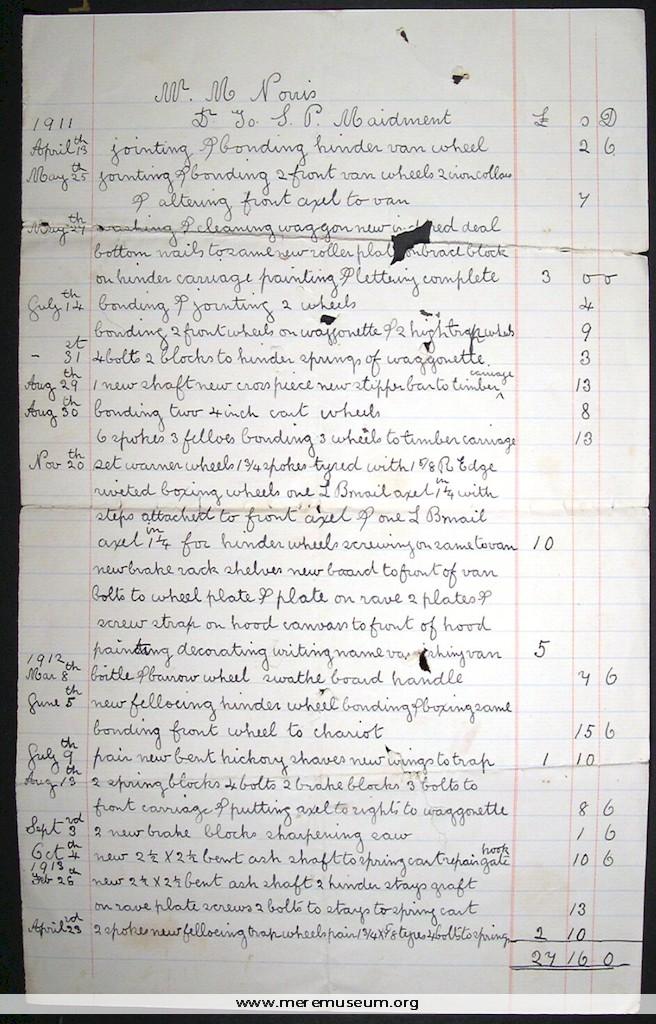 Mr. M Norris
Dr. To. S. P. Maidment
1911 £ s D
April 13th jointing & bonding hinder van wheel 2 6
May 25th jointing & bonding 2 front van wheels 2 iron collars
& altering front axel to van 7
May 27th washing & cleaning waggon new red deal
bottom nails to same new roller plate on brace block
on hinder carriage painting & lettering complete 3 0 0
July 14th bonding & jointing 2 wheels 4
bonding 2 front wheels on waggonette & 2 high trap wheels 9
- 31st 4 bolts 2 blocks to hinder springs of waggonette 3
Aug 29th 1 new shaft new cross piece new slipper bar to timber carriage 13
Aug 30th bonding two 4 inch cart wheels 8
6 spokes 3 felloes bonding 3 wheels to timber carriage 13
Nov 20th set warner wheels 1 3/4 spokes tyred with 1 5/8 R Edge
riveted boxing wheels one L B mail axel 1 1/4 in with
steps attached to front axel & one L B mail
axel 1 1/4 in for hinder wheels screwing on same to van 10
new brake rack shelves new board to front of van
bolts to wheel plate & plate on rave 2 plates &
screw strap on hood canvass to front of hood
painting decorating writing name van 5
1912
Mar 8th boitle & barrow wheel swathe board handle 7 6
June 5th new fellocing hinder wheel bonding & boxing same
bonding front wheel to chariot 15 6
July 9th pair new bent hickory shaves new wings to trap 1 10
Aug 13th 2 spring blocks 4 bolts 2 brake blocks 3 bolts to
front carriage & putting axel to rights to waggonette 8 6
Sept 3rd 2 new brake blocks sharpening saw 1 6
Oct 4th new 2 1/2 X 2 1/2 bent ash shaft to spring cart repair gate hook 10 6
1913
Feb 25th new 2 1/2 X 2 1/2 bent ash shaft 2 hinder stays graft
on rave plate screws 2 bolts to stays to spring cart 13
April 23rd 2 spokes new fellocing trap wheels pair 1 3/4 X 5/8 tyres 4 bolts to spring 2 10
27 16 0
www.meremuseum.org